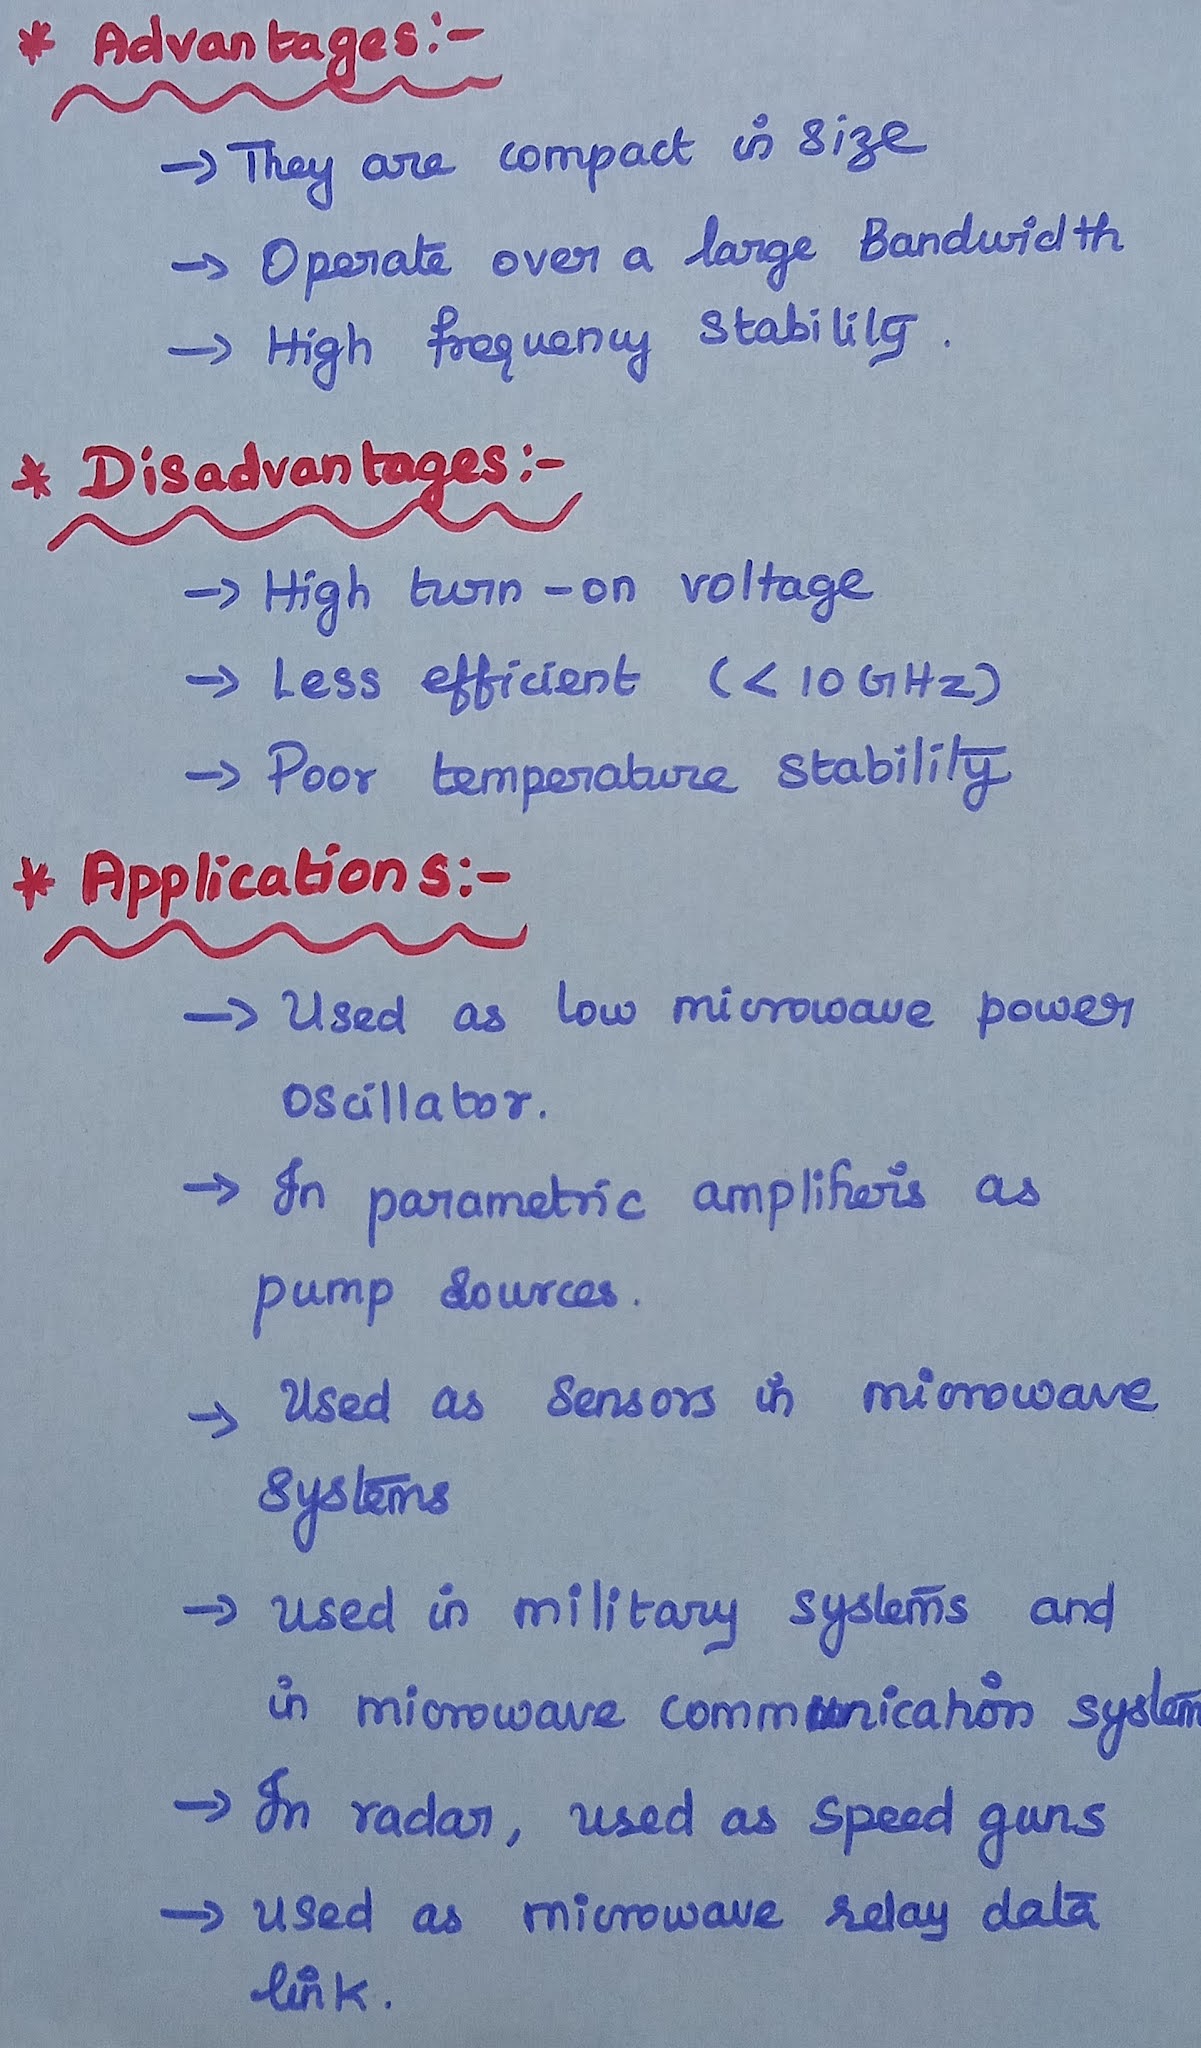 * Advantages:-
→ They are compact in size
→ Operate over a large Bandwidth
→ High frequency stability.
* Disadvantages:-
→ High turn-on voltage
→ Less efficient (< 10 GHz)
→ Poor temperature stability
* Applications:-
→ Used as low microwave power
oscillator.
→ In parametric amplifiers as
pump sources.
→ Used as sensors in microwave
systems
→ used in military systems and
in microwave communication system
→ In radar, used as speed guns
→ used as microwave relay data
link.